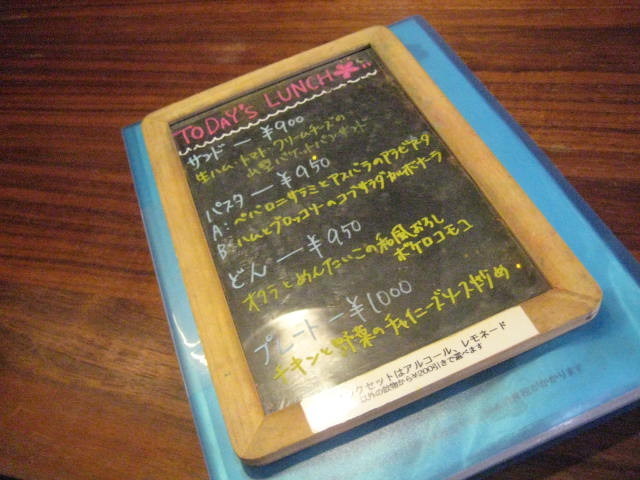 TODAY'S LUNCH
サンド ー ¥900
生ハム・トマト クリームチーズの
パスタ ー ¥950
A: ペパロニサラミとアスパラのアラビアタ
B: ハムとブロッコリーのコブサラダ
どん ー ¥950
オクラとめんたいこの和風おろし
ポケロコモコ
プレート ー ¥1000
チキンと野菜のチャイニーズソース炒め。
ンクセットはアルコール、レモネード
以外の飲物から¥200引きで選べます